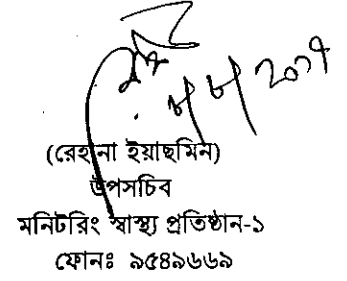 (রেহানা ইয়াছমিন)
উপসচিব
মনিটরিং স্বাস্থ্য প্রতিষ্ঠান-১
ফোনঃ ৯৫৪৯৬৬৯